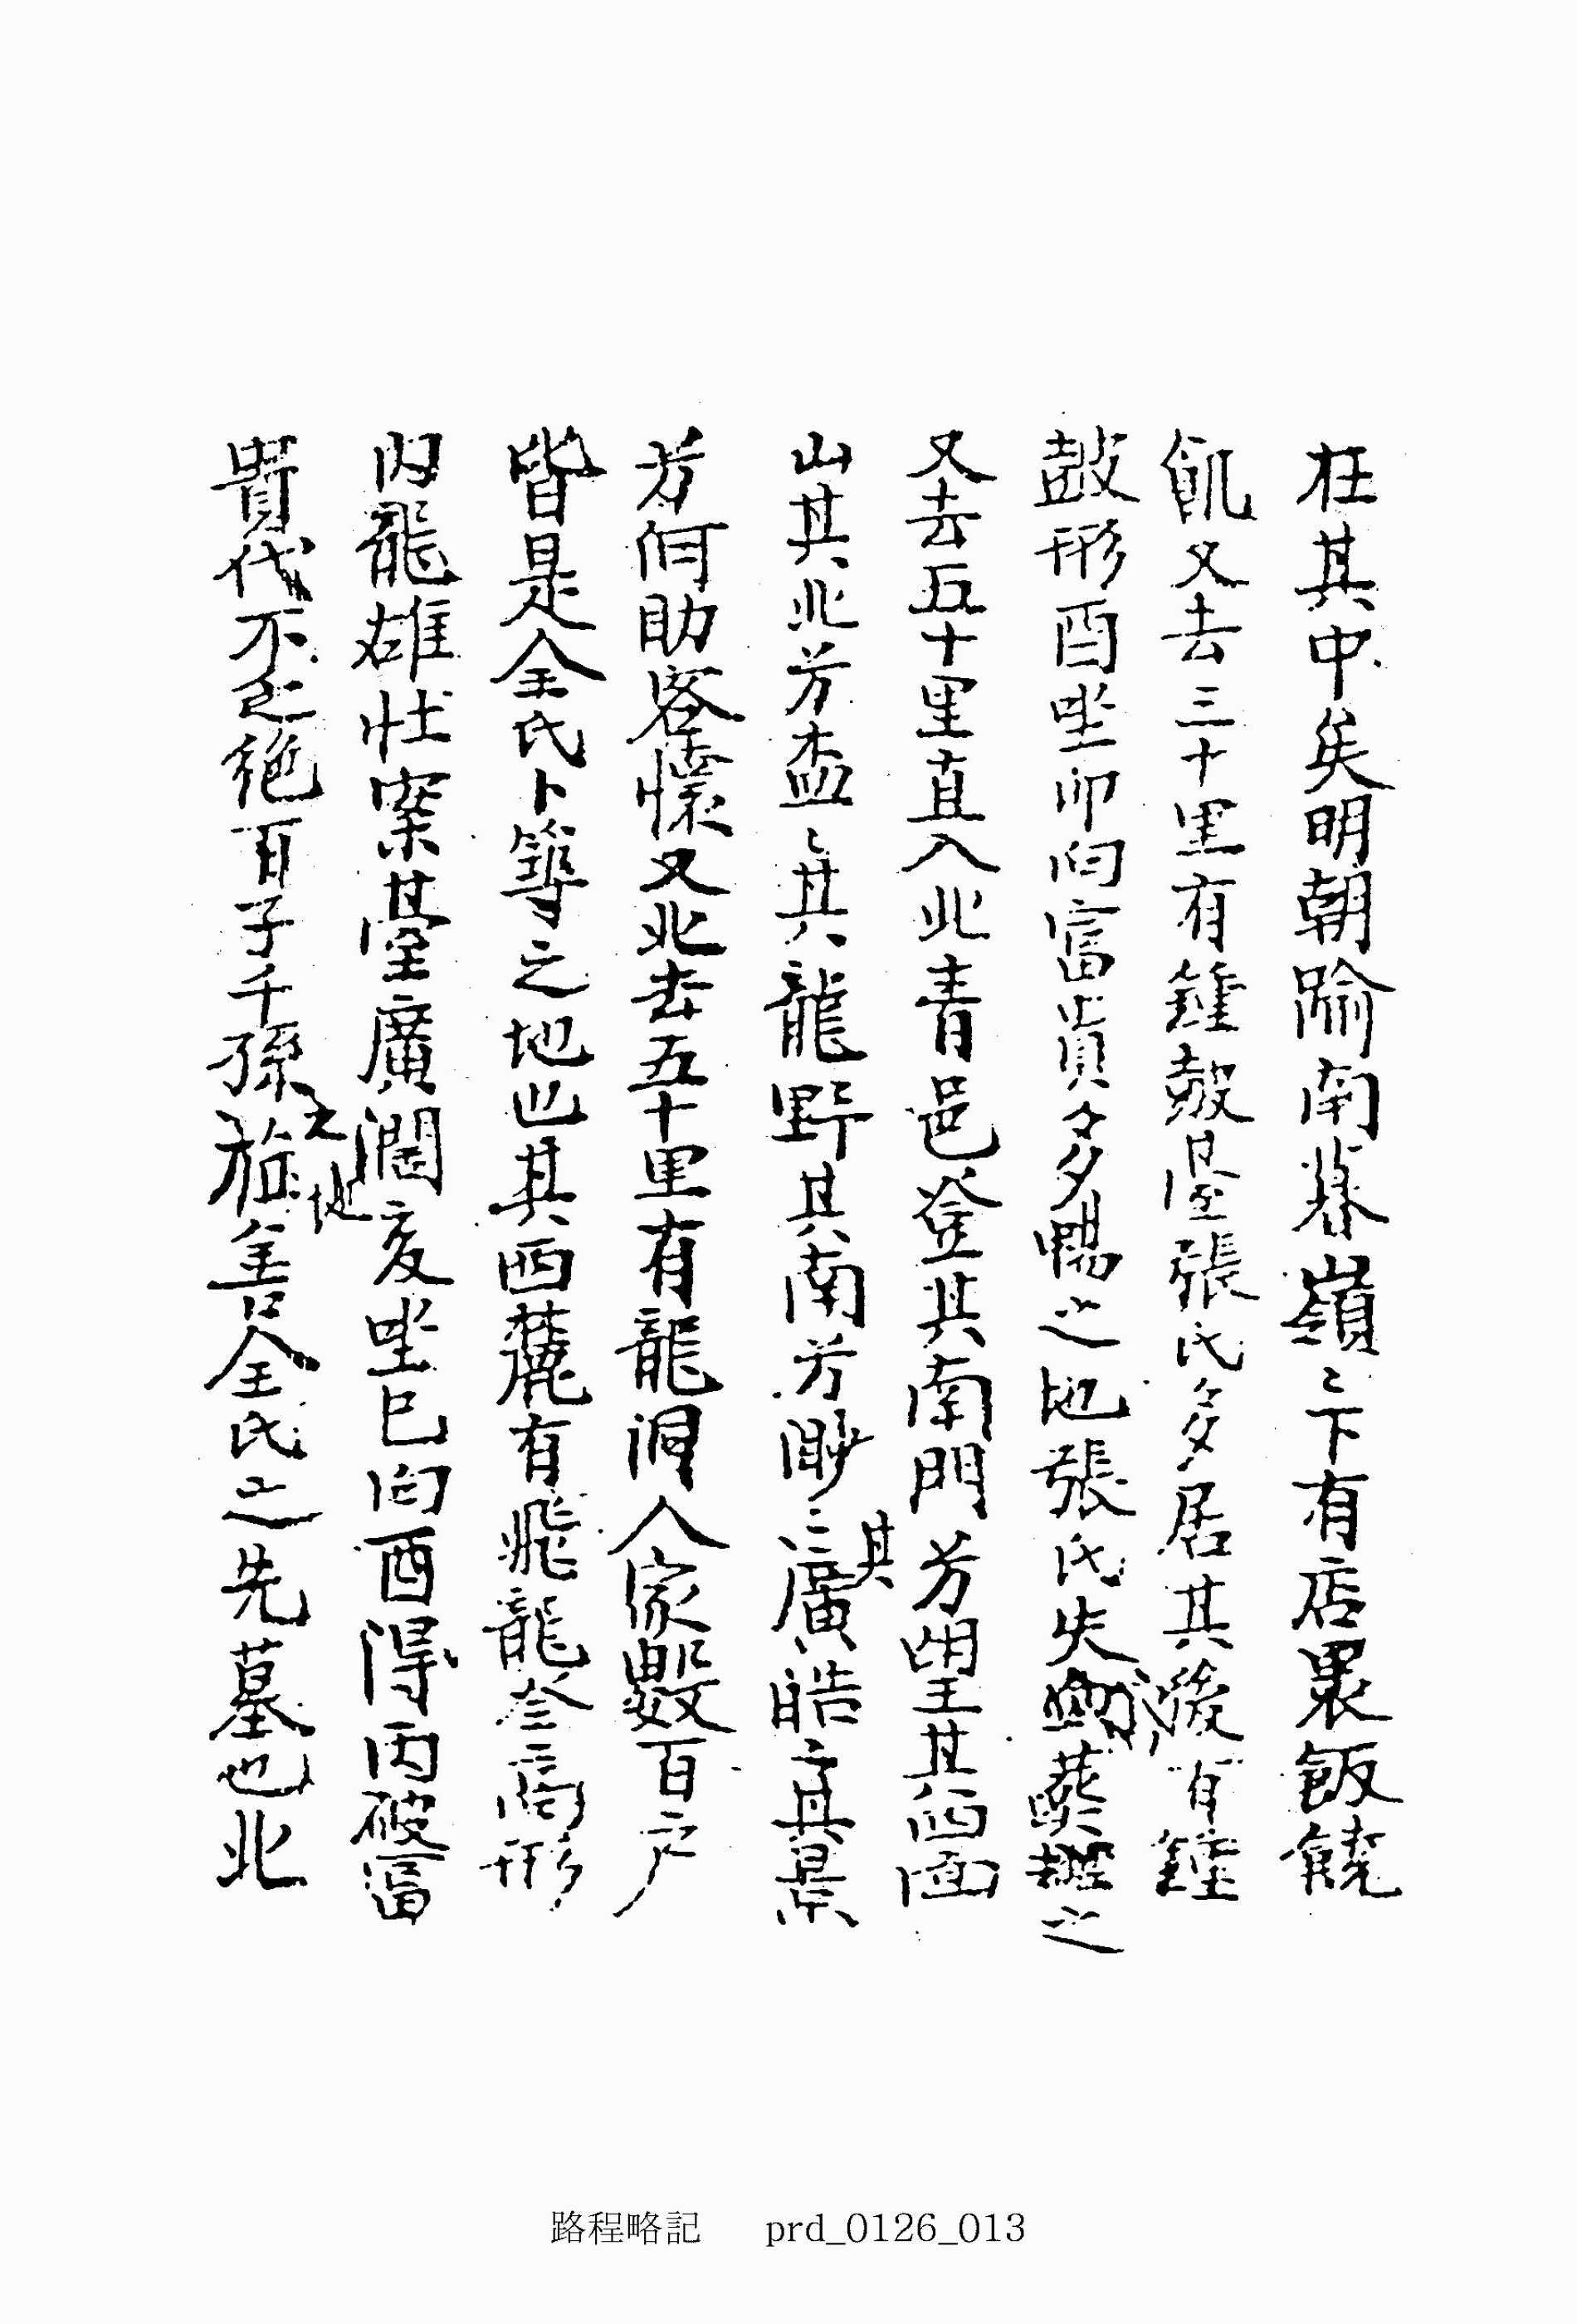 在其中矣明朝踰南暮嶺〻下有店裹飯饒
飢又去三十里有鍾鼓垕張氏多居其後有鍾
鼓形酉坐卯向富貴多多賜之地張氏失葬之
又去五十里直入北青邑登其南門芳望其西面
山其北芳盃〻其龍野其南芳眇〻其廣皓〻其景
芳何助客懷又北去五十里有龍洞人家數百戶
皆是全氏卜筭之地也其西麓有飛龍登高形
內龍雄壯案臺廣濶亥坐巳向酉得丙破富
貴代不乏絕百子千孫之地旅善全氏之先墓也北
路程略記 prd_0126_013